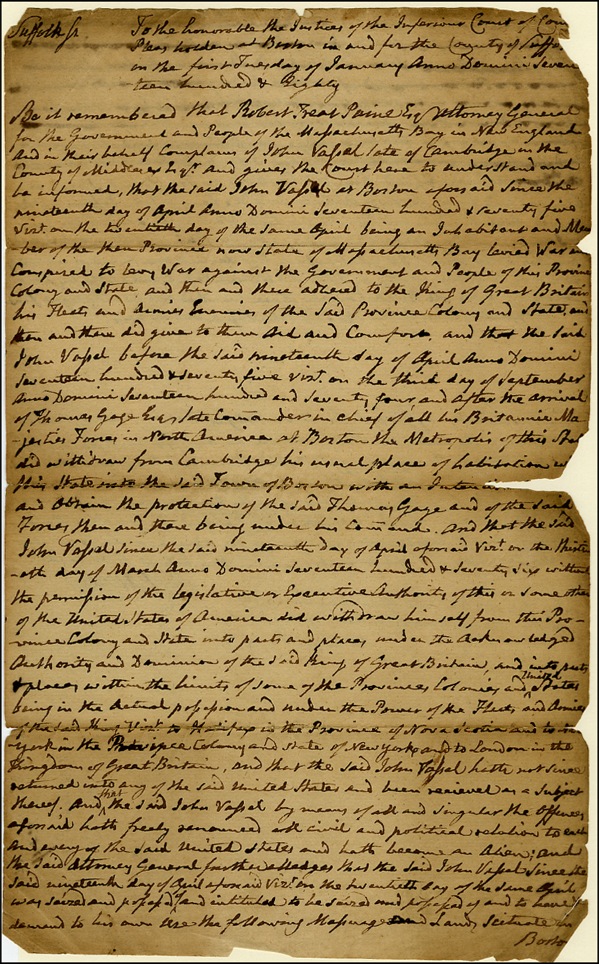 Suffolk Ss.
To the honorable the Justices of the Inferiour Court of Com
Pleas holden at Boston in and for the County of Suffo
on the first Tuesday of January Anno Domini Seven
teen hundred & Eighty
Be it remembered that Robert Treat Paine Esq Attorney General
for the Government and People of the Massachusetts Bay in New England
and in their behalf Complains of John Vassal late of Cambridge in the
County of Middlesex Esqr. and gives the Court here to understand and
be informed, that the said John Vassal at Boston aforsaid since the
nineteenth day of April Anno Domini Seventeen hundred & seventy five
Vizt. on the twentieth day of the same April being an Inhabitant and Mem
ber of the then Province now State of Massachusetts Bay levied War and
Conspired to levy War against the Government and People of this Provinc
Colony and State, and then and there adhered to the King of Great Britain
his Fleets and Armies Enemies of the Said Province Colony and State, and
then and there did give to them Aid and Comfort, and that the said
John Vassal before the said nineteenth day of April Anno Domini
Seventeen hundred & seventy five Vizt. on the third day of September
Anno Domini Seventeen hundred and Seventy four, and after the arrival
of Thomas Gage Esqr late Comander in chief of all his Britannic Ma
-jesties Forces in North America at Boston the Metropolis of this Sta
did withdraw from Cambridge his usual place of habitation w
this State into the said Town of Boston with an Intention
and Obtain the protection of the said Thomas Gage and of the said
Forces then and there being under his Comand. And that the said
John Vassal since the said nineteenth day of April aforsaid Vizt. on the thirti
-eth day of March Anno Domini Seventeen hundred & Seventy Six without
the permission of the legislative or Executive Authority of this or some other
of the United States of America did withdraw himself from this Pro-
-vince Colony and State into parts and places under the Acknowledged
Authority and Dominion of the said King of Great Britain, and into parts
& places within the limits of some of the Provinces Colonies and United States
being in the Actual possession and under the Power of the Fleets and Armies
of the said King Vizt. to Halifax in the Province of Nova Scotia and to new
-york in the Province Colony and State of New York and to London in the
Kingdom of Great Britain, and that the said John Vassal hath not since
returned into any of the said United States and been recieved as a Subject
thereof. And that the said John Vassal by means of all and singular the Offences
aforsaid hath freely renounced all civil and political relation to each
and every of the said United States and hath become an Alien; and
the said Attorney General further alledges that the said John Vassal since the
said nineteenth day of April aforsaid Vizt. on the twentieth day of the same April
was seized and possessd. and intitled to be seized and possessd. of and to have &
demand to his own Use the following Messuage and Lands scituate in
Boston